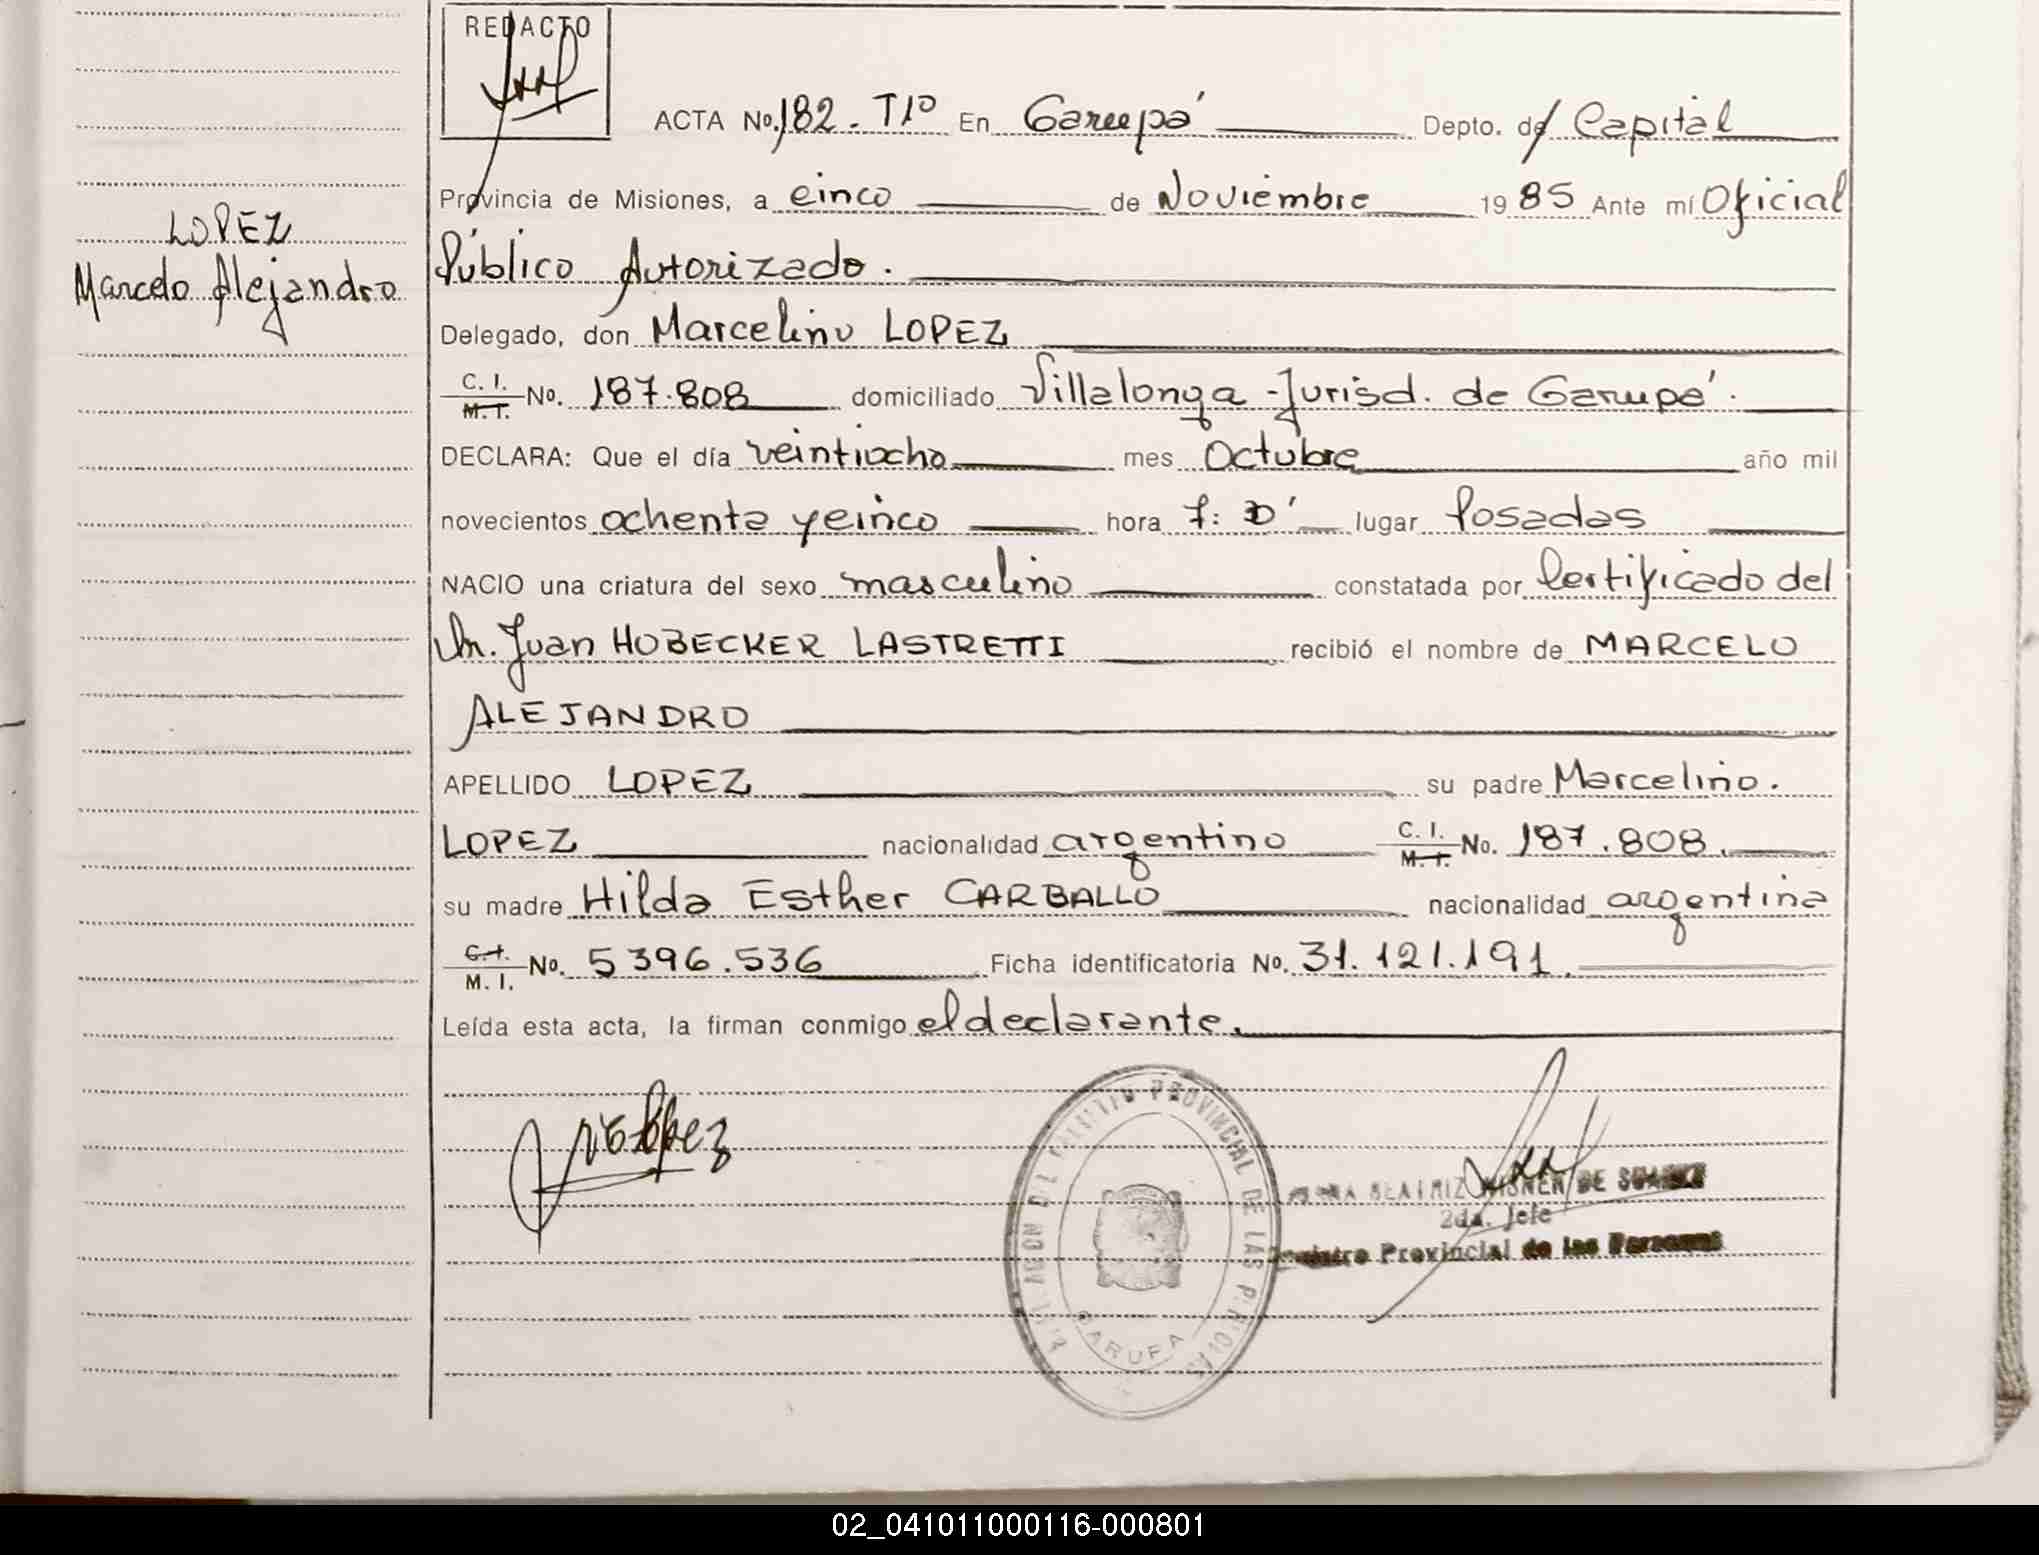 REDACTO
ACTA No. 182 - Tº 1º En Garupá Depto. de Capital
Provincia de Misiones, a cinco de Noviembre 1985 Ante mí Oficial
LOPEZ
Público Autorizado.
Marcelo Alejandro
Delegado, don Marcelino LOPEZ
C. I. M. I. No. 187.808 domiciliado Villalonga - Jurisd. de Garupá.
DECLARA: Que el día veintiocho mes Octubre año mil
novecientos ochenta y cinco hora lugar Posadas
NACIO una criatura del sexo masculino constatada por Certificado del
Dr. Juan HOBECKER LASTRETTI recibió el nombre de MARCELO
ALEJANDRO
APELLIDO LOPEZ su padre Marcelino.
LOPEZ nacionalidad argentino C. I. M. I. No. 187.808.
su madre Hilda Esther CARBALLO nacionalidad argentina
C. I. M. I. No. 5396.536 Ficha identificatoria No. 31.121.191.
Leída esta acta, la firman conmigo el declarante.
López
PROVINCIAL DE LAS PERSONAS
GARUPA
BEATRIZ DE
2da. Jefe
Registro Provincial de las Personas
02_041011000116-000801